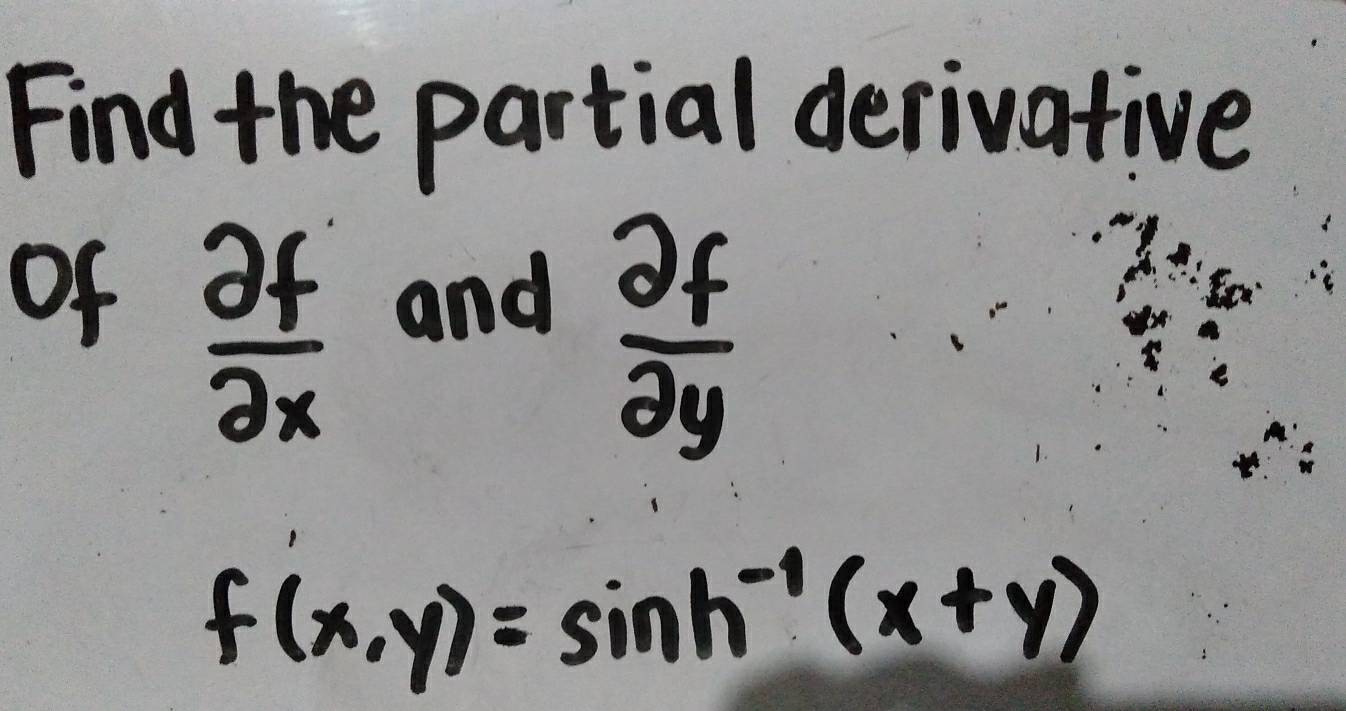 Find the partial derivative
Of ∂f/∂x and ∂f/∂y
f(x,y)= sinh⁻¹(x+y)